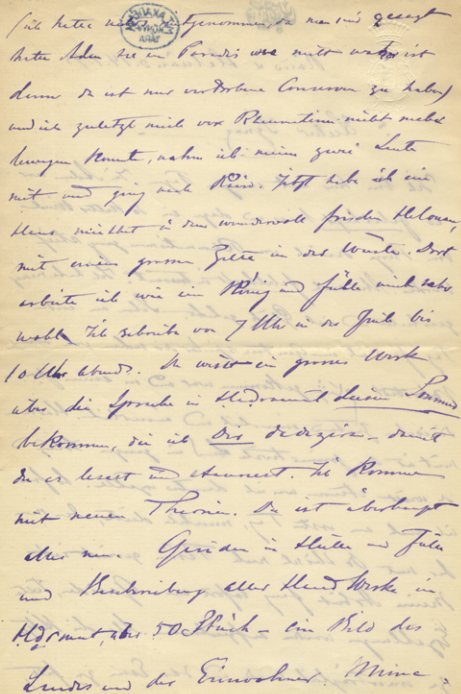 (ich hatte nichts mitgenommen, da man mir gesagt
hatte Aden sei ein Paradis was nicht wahr ist
denn da ist nur verdorbene Conserven zu haben)
und ich zuletzt mich vor Rheumatism nicht mehr
bewegen konnte, nahm ich meine zwei Leute
mit und ging nach Kairo. Jetzt habe ich ein
Haus miethet in dem wundervoll frischen Heluan,
mit einem grossen Zelte in der Wüste. Dort
arbeite ich wie ein König und fühle mich sehr
wohl. Ich schreibe von 7 Uhr in der Früh bis
10 Uhr abends. Du wirst ein grosses Werk
über die Sprache in Hadramut diesen Sommer
bekommen, die ich Dir dediziere – damit
du es lesest und Ich komme
mit neuen Theorien. Da ist überhaupt
alles neu. in Hülle und Fülle
und Beschreibung aller Handwerke in
Hdrmut, über 50 Stück – ein Bild des
Landes und der Einwohner. Meine